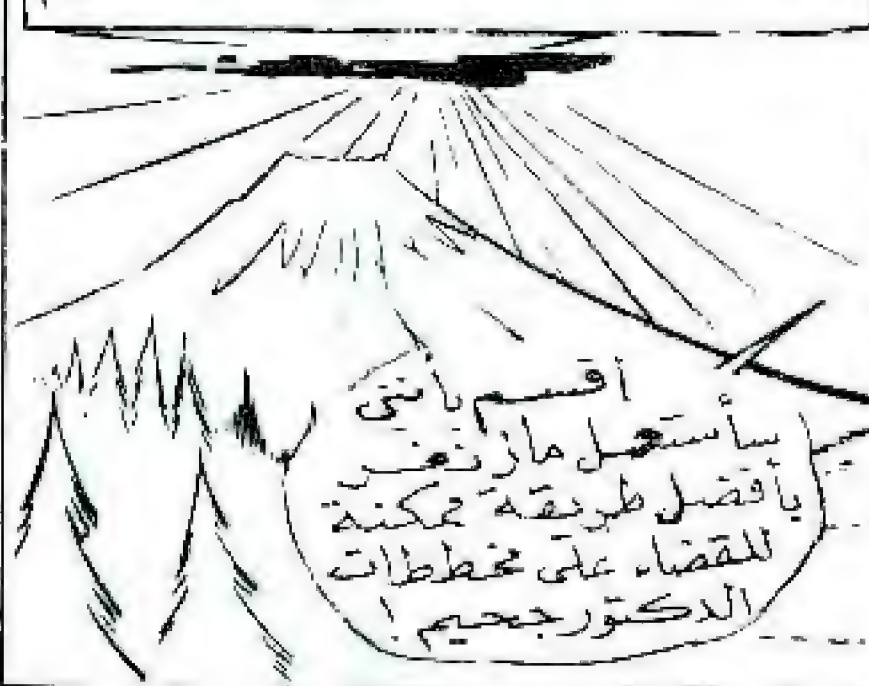 أقسم بأنني
سأستعمل مازنغر
بأفضل طريقة ممكنة
للقضاء على مخططات
الدكتور جحيم !